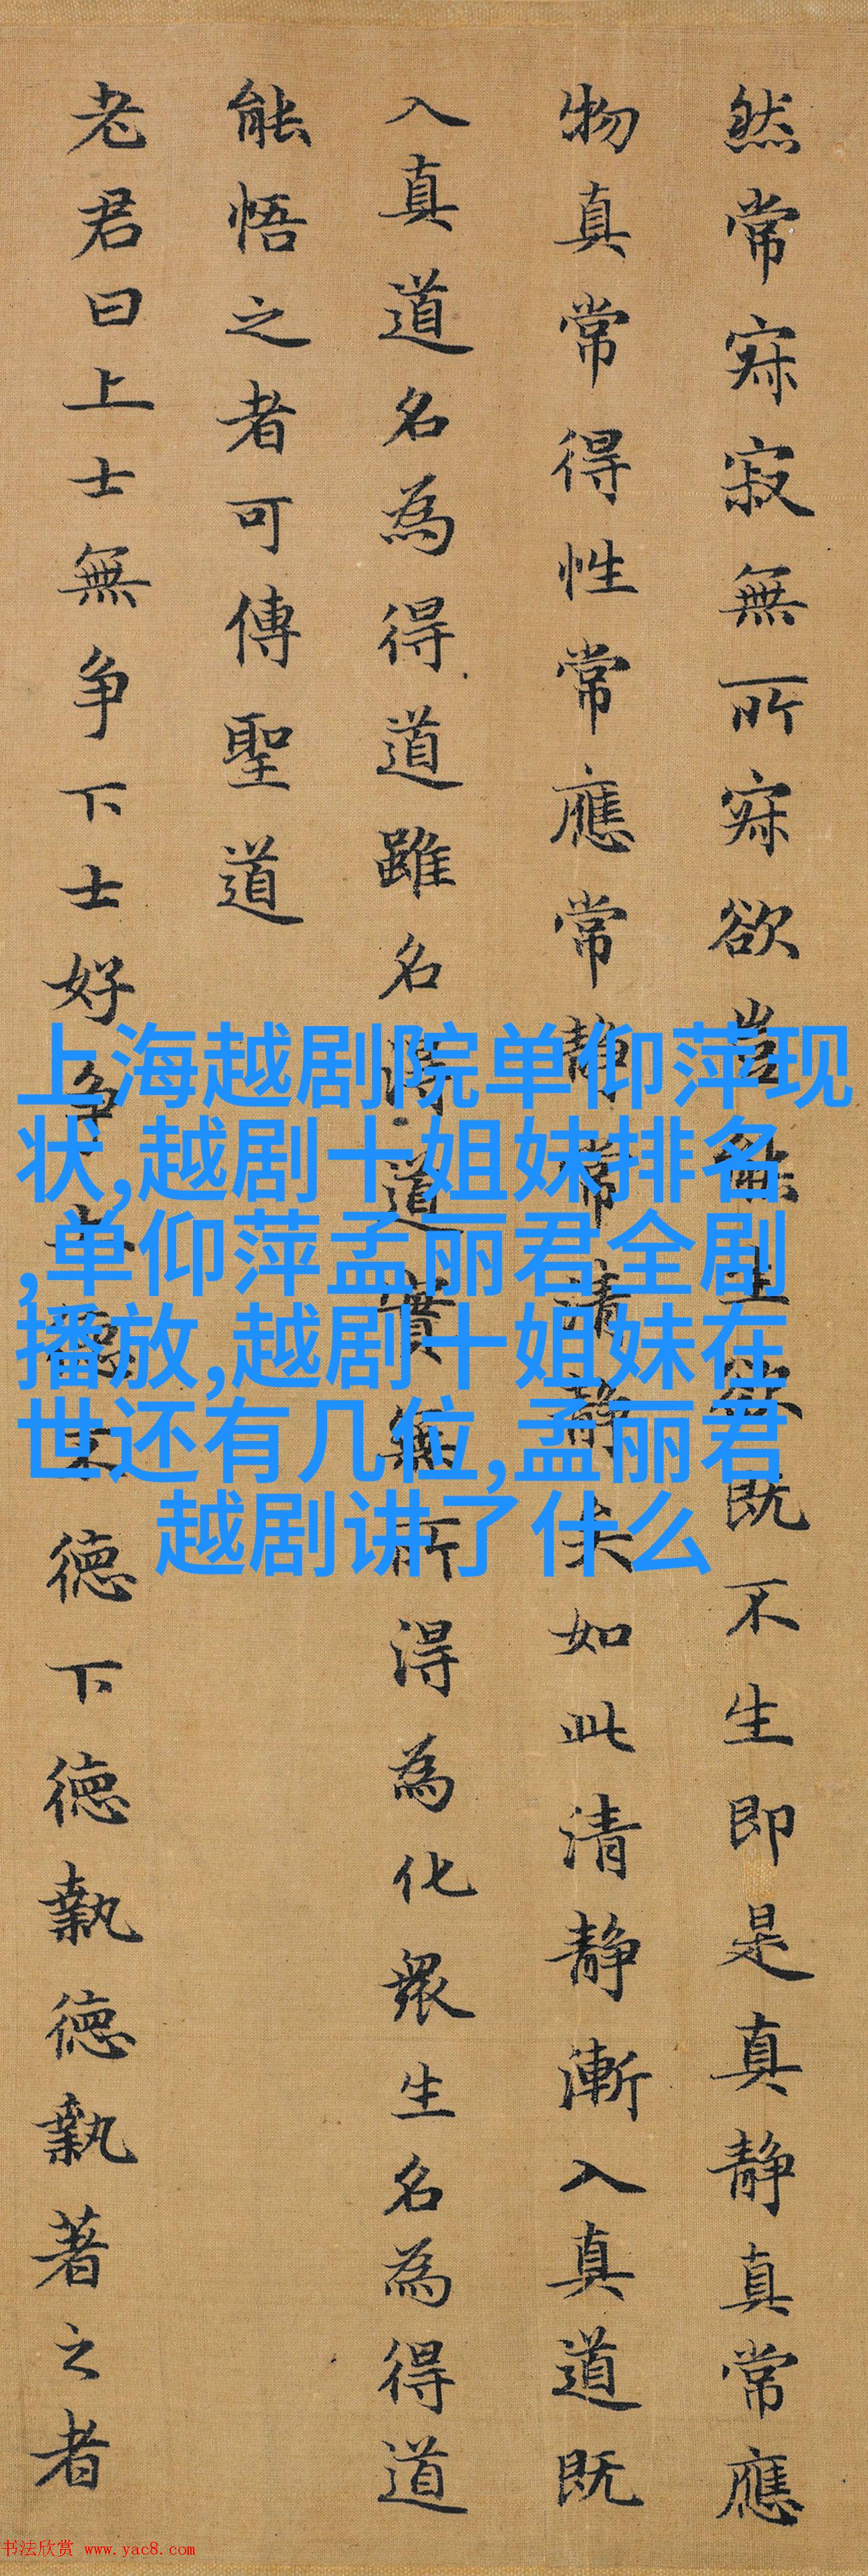 然常寂寂無所寂欲豈能生欲既不生即是真静真常應
物真常得性常應常静常清静矣如此清静漸入真道既
入真道名為得道雖名得道實無所得為化衆生名為得道
能悟之者可傳聖道
老君曰上士無争下士好争上德不德下德執德執著之者
上海越剧院单仰萍现
状,越剧十姐妹排名
,单仰萍孟丽君全剧
播放,越剧十姐妹在
世还有几位,孟丽君
越剧讲了什么
书法欣赏 www.yac8.com